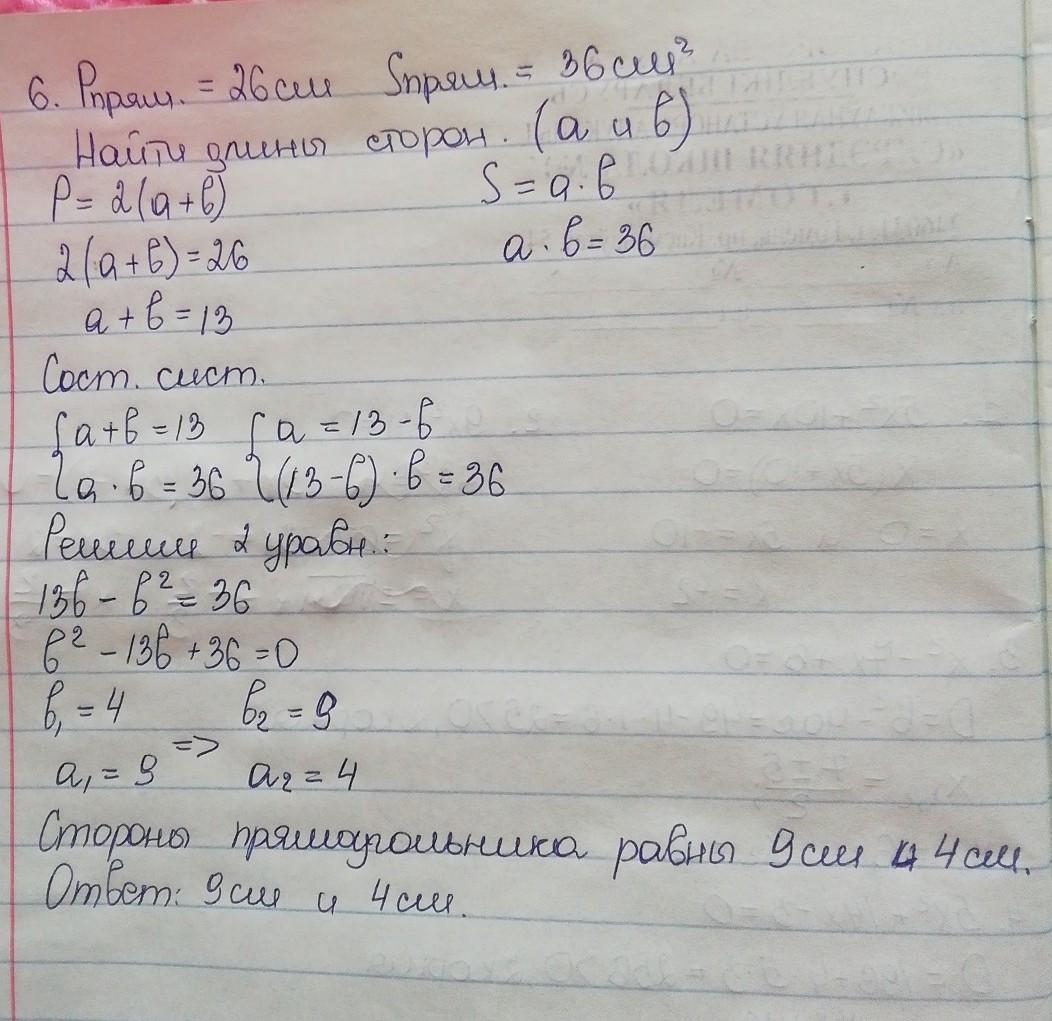 6. Pпрям. = 26см Sпрям. = 36см²
Найти длины сторон. (a и b)
P = 2(a+b) S = a·b
2(a+b)=26 a·b=36
a+b=13
Сост. сист.
{a+b=13 {a=13-b
{a·b=36 {(13-b)·b=36
Решим 2 уравн.:
13b-b²=36
b²-13b+36=0
b₁=4 b₂=9
=>
a₁=9 a₂=4
Стороны прямоугольника равны 9см и 4см.
Ответ: 9см и 4см.